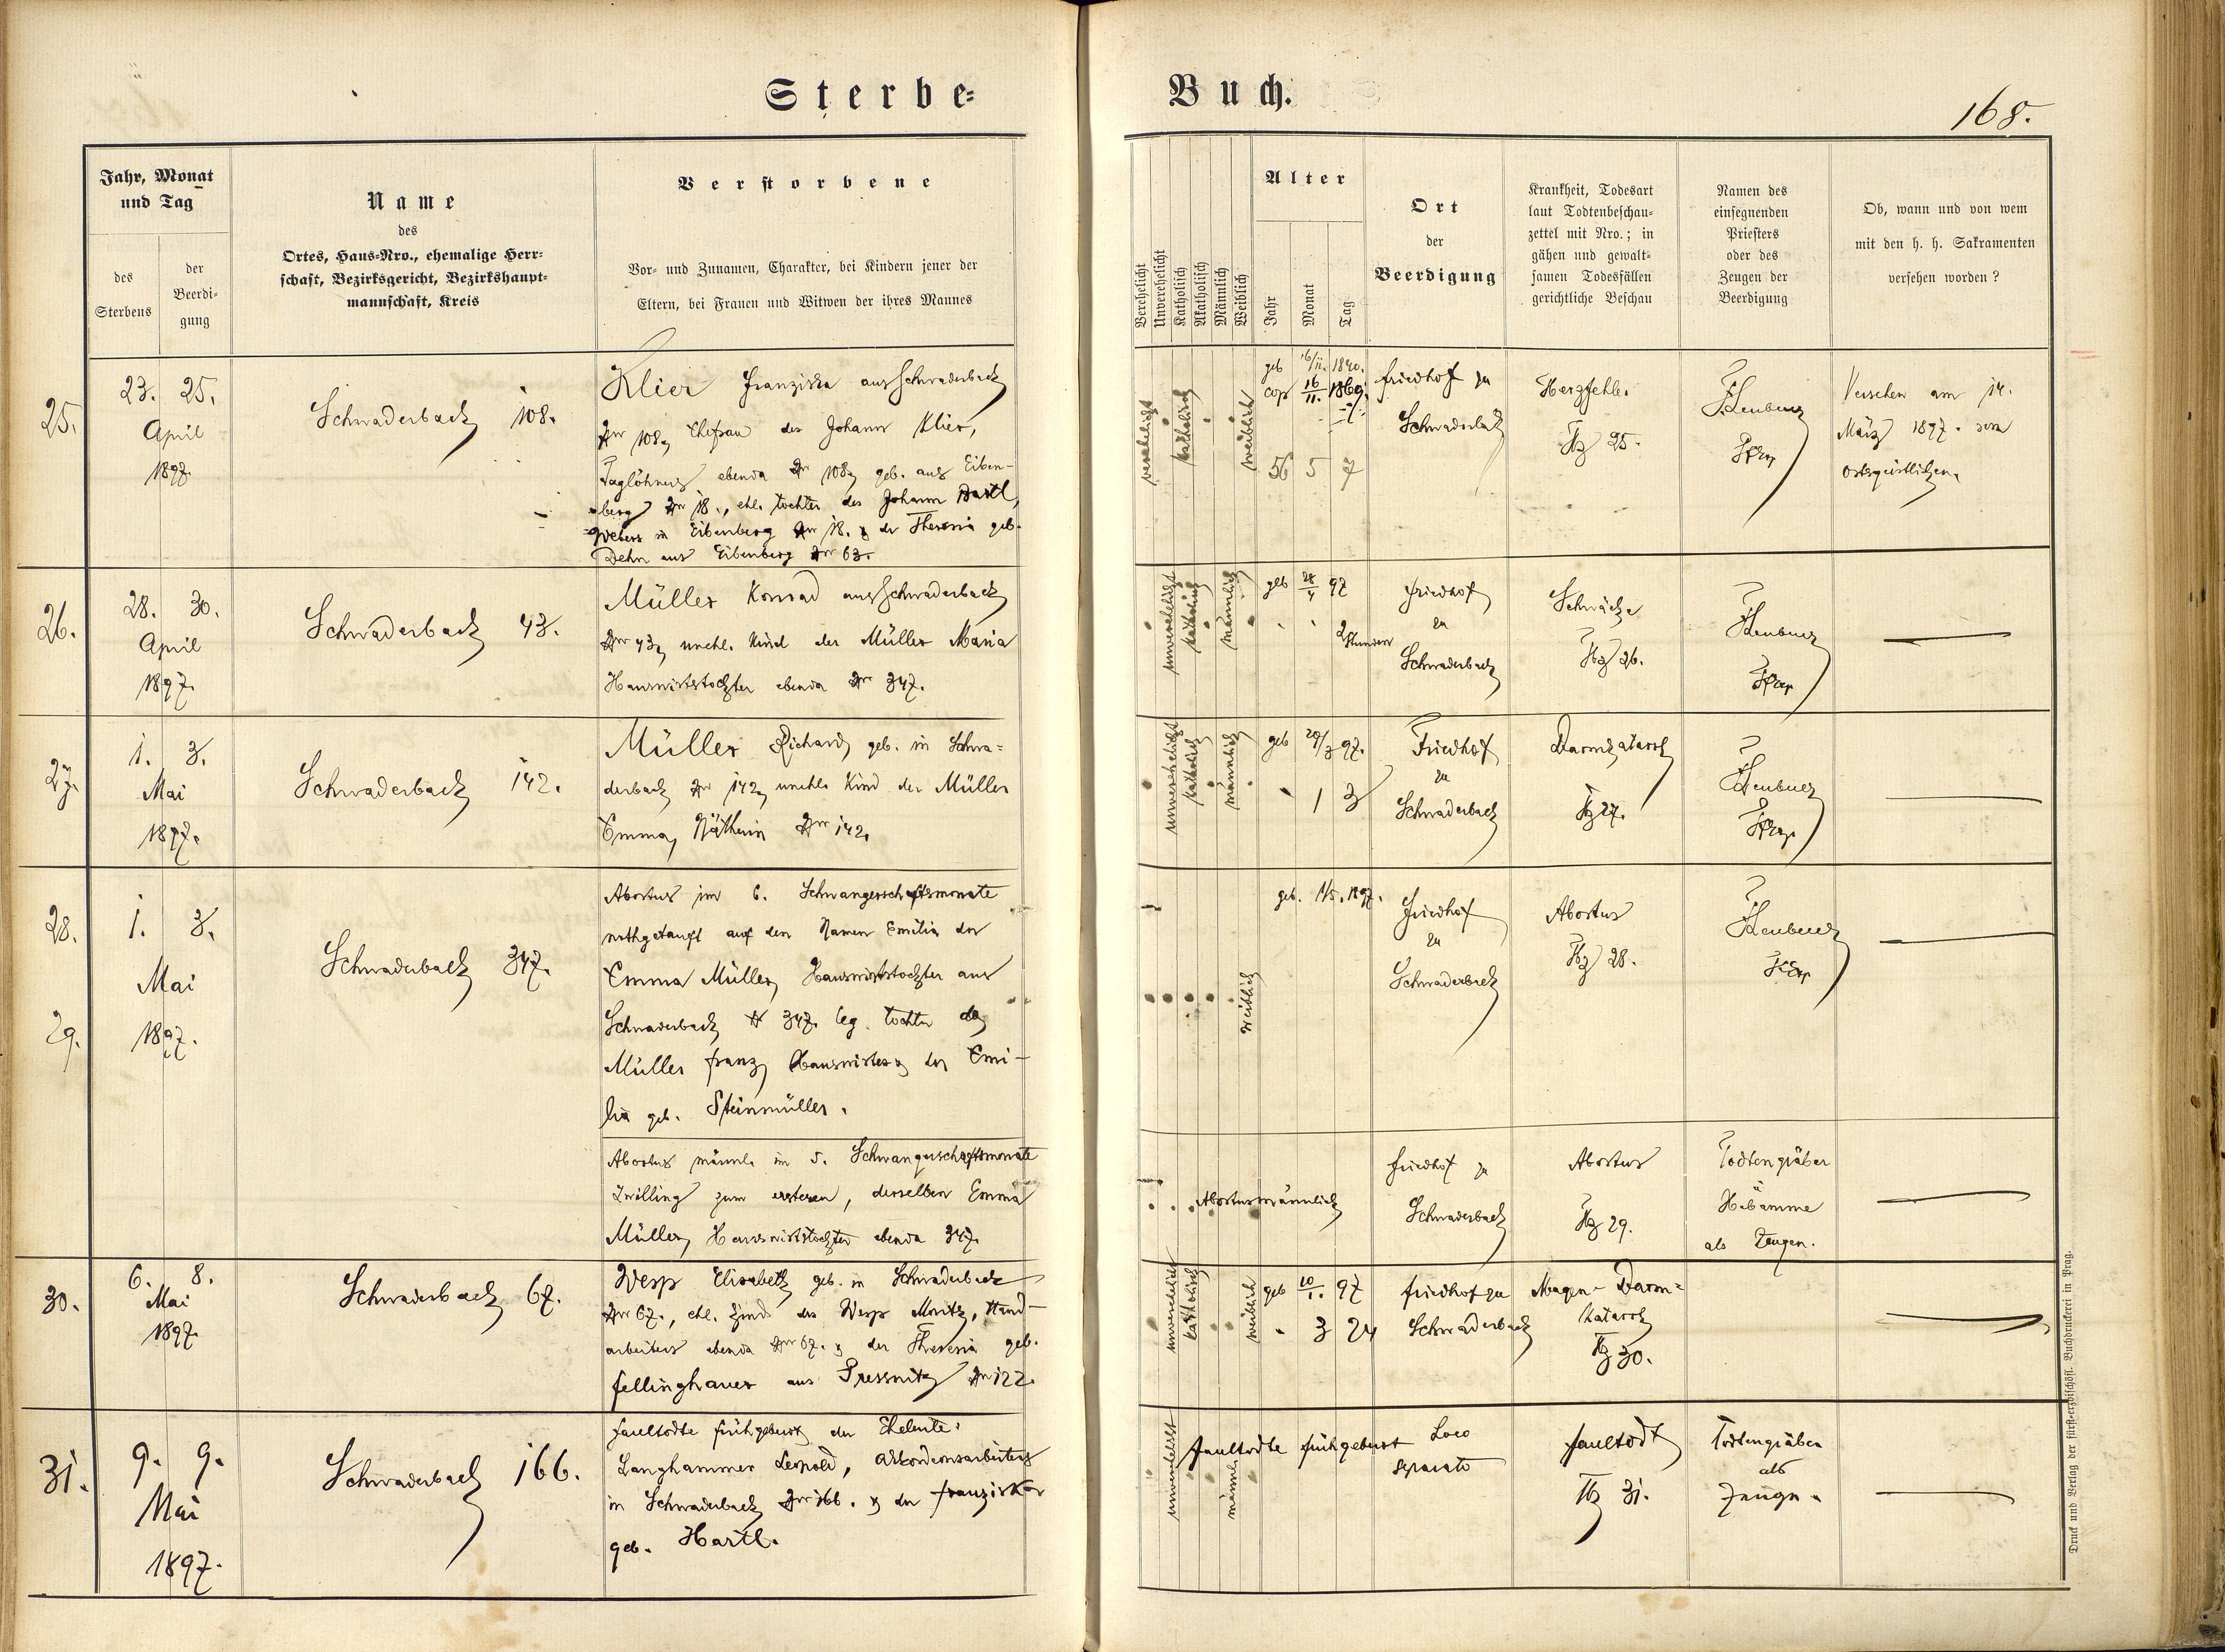 Sterbe=
Buch.
168.
Jahr, Monat
und Tag
des
Sterbens
der
Beerdi-
gung
Name
des
Ortes, Haus-Nro., ehemalige Herr-
schaft, Bezirksgericht, Bezirkshaupt-
mannschaft, Kreis
Verstorbene
Vor- und Zunamen, Charakter, bei Kindern jener der
Eltern, bei Frauen und Witwen der ihres Mannes
Verehelicht
Unverehelicht
Katholisch
Akatholisch
Männlich
Weiblich
Alter
Jahr
Monat
Tag
Ort
der
Beerdigung
Krankheit, Todesart
laut Todtenbeschau-
zettel mit Nro.; in
gähen und gewalt-
samen Todesfällen
gerichtliche Beschau
Namen des
einsegnenden
Priesters
oder des
Zeugen der
Beerdigung
Ob, wann und von wem
mit den h. h. Sakramenten
versehen worden?
25.
23. 25.
April
1897.
Schwaderbach 108.
Klier Franziska aus Schwaderbach
Nr 108, Ehefrau des Johann Klier,
Taglöhners ebenda Nr 108, geb. aus Eiben-
berg Nr 18., ehl. Tochter des Johann Hartl,
Webers in Eibenberg Nr 18. & der Theresia geb.
aus Eibenberg Nr 63.
verehelicht
katholisch
weiblich
geb 16/11. 1840.
cop 16/11. 1869.
56 5 7
Friedhof zu
Schwaderbach
Herzfehler
Tz 25.
Versehen am 14.
März 1897. vom
Ortsgeistlichen
26.
28. 30.
April
1897.
Schwaderbach 43.
Müller Konrad aus Schwaderbach
Nr 43, unehl. Kind der Müller Maria
Hauswirtstochter ebenda Nr 347.
unverehelicht
katholisch
männlich
geb 28/4 97
2 Stunden
Friedhof
zu
Schwaderbach
Schwäche
Tz 26.
27.
1. 3.
Mai
1897.
Schwaderbach 142.
Müller Richard, geb. in Schwa=
derbach Nr 142, unehl. Kind der Müller
Emma, Näherin Nr 142.
unverehelicht
katholisch
männlich
geb 29/3 97.
1 3
Friedhof
zu
Schwaderbach
Darmkatarrh
Tz 27.
28.
1. 3.
Mai
1897.
Schwaderbach 347.
Abortus im 6. Schwangerschaftsmonate
nothgetauft auf den Namen Emilia der
Emma Müller, Hauswirtstochter aus
Schwaderbach Nr 347. leg. Tochter des
Müller Franz, Hauswirtes & der Emi-
lia geb. Steinmüller.
weiblich
geb. 1/5. 1897.
Friedhof
zu
Schwaderbach
Abortus
Tz 28.
29.
Abortus männl. im 5. Schwangerschaftsmonate
Zwilling zum ersteren, derselben Emma
Müller, Hauswirtstochter ebenda 347.
Abortus männlich
Friedhof zu
Schwaderbach
Abortus
Tz 29.
Todtengräber
Hebamme
als Zeugen.
30.
6. 8.
Mai
1897.
Schwaderbach 67.
Wesp Elisabeth geb. in Schwaderbach
Nr 67., ehl. Kind des Wesp Moritz, Hand-
arbeiters ebenda Nr 67. & der Theresia geb.
Fellinghauer aus Pressnitz Nr 122.
unverehelicht
katholisch
weiblich
geb 10/1. 97
3 24
Friedhof zu
Schwaderbach
Magen- Darm=
katarrh
Tz 30.
31.
9. 9.
Mai
1897.
Schwaderbach 166.
Faultodte Frühgeburt der Eheleute:
Langhammer Leopold, Akkordeonsarbeiters
in Schwaderbach Nr 166. & der Franziska
geb. Hartl.
unverehelicht
männl.
faultodte Frühgeburt
Loco
separato
faultodt
Tz 31.
Todtengräber
als
Zeuge.
Druck und Verlag der fürst-erzbischöfl. Buchdruckerei in Prag.